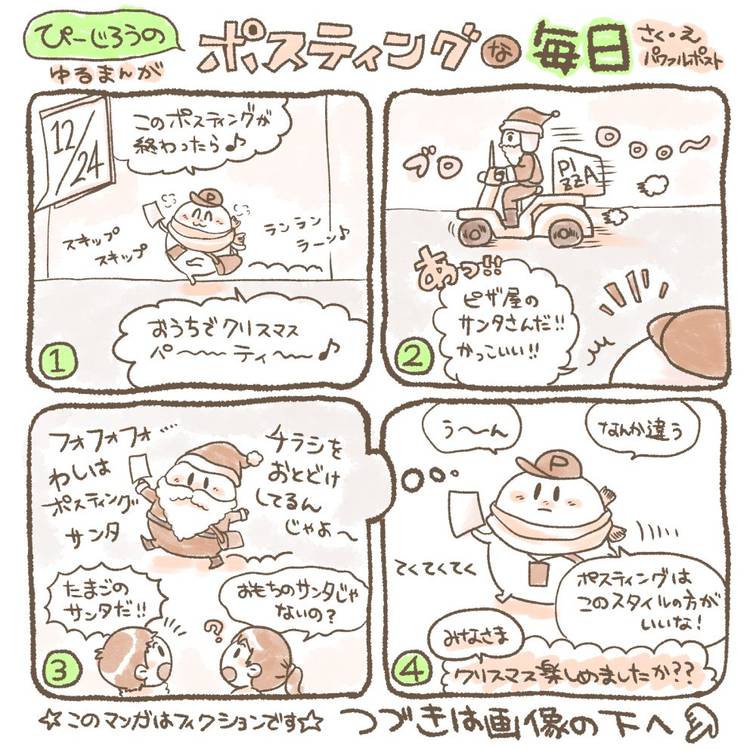 ぴーじろうの
ゆるまんが
ポスティングな毎日
さく・え
パワフルポスト
12/24
このポスティングが
終わったら♪
スキップ
スキップ
ランラン
ラーン♪
おうちでクリスマス
パ〜〜ティ〜♪
1
ブロロロロ〜
PI
ZZA
あっ!!
ピザ屋の
サンタさんだ!!
かっこいい!!
2
フォフォフォ…
わしは
ポスティング
サンタ
チラシを
おとどけ
してるん
じゃよ〜
たまごの
サンタだ!!
おもちのサンタじゃ
ないの?
?
3
う〜ん
なんか違う
P
てくてくてく
ポスティングは
このスタイルの方が
いいな!
みなさま
クリスマス楽しめましたか??
4
☆このマンガはフィクションです☆
つづきは画像の下へ